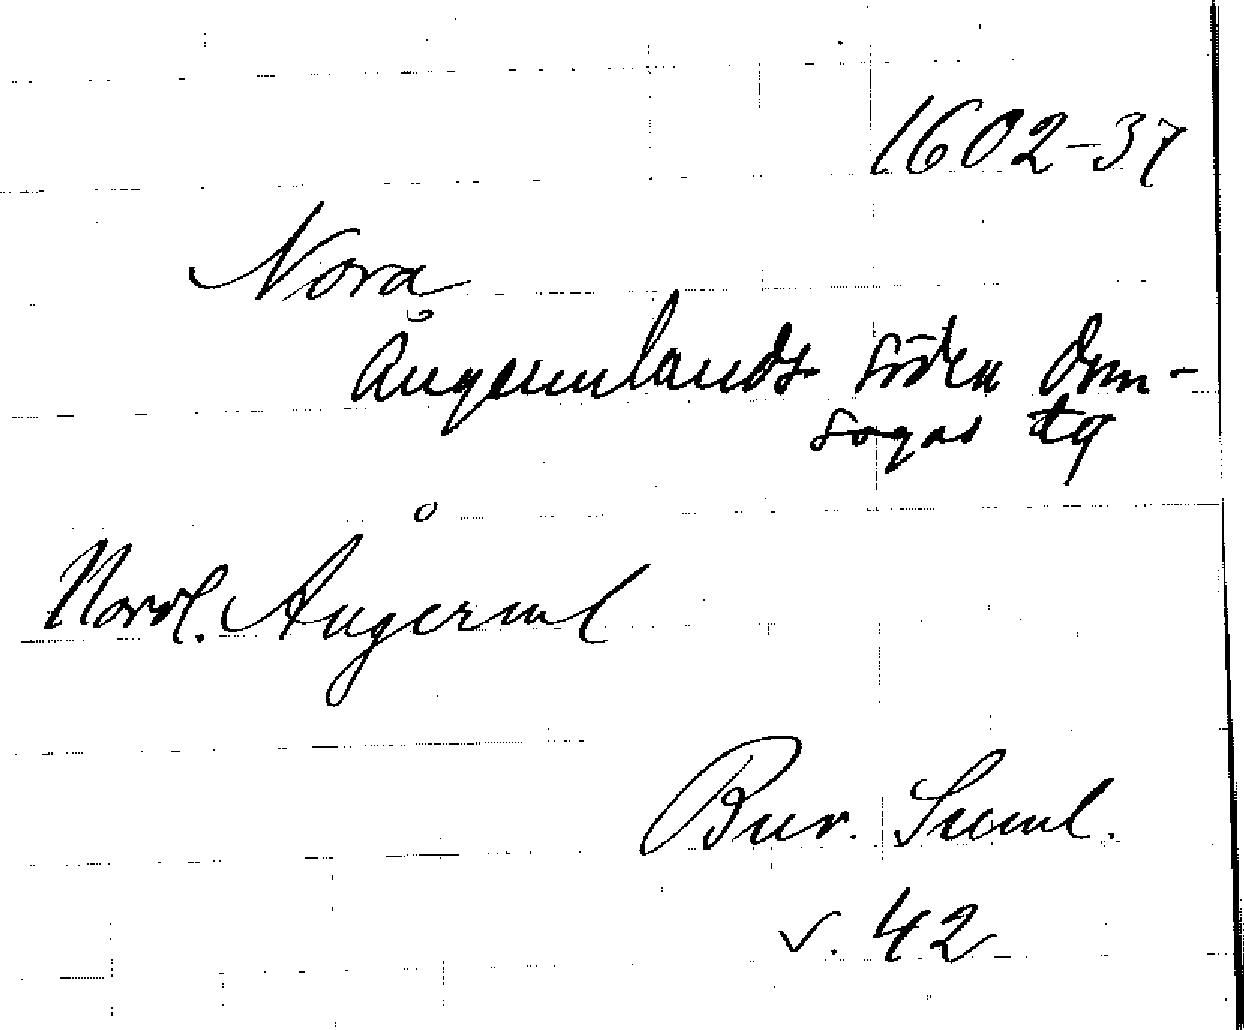 1602-37
Nora
Ångermlands södra dom-
sagas tg
Nordl. Ångerml
Bur. Suml.
v. 42